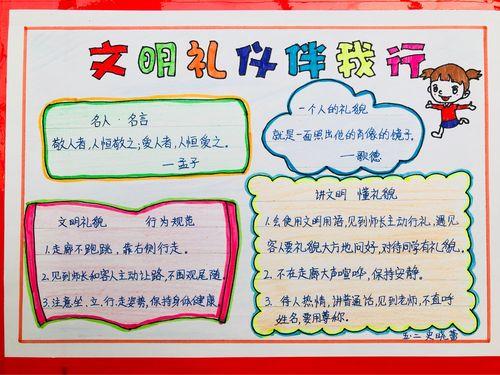 文明礼仪伴我行
名人·名言
敬人者,人恒敬之;爱人者,人恒爱之。
—孟子
一个人的礼貌
就是一面照出他的肖像的镜子。
—歌德
文明礼貌 行为规范
1.走廊不跑跳,靠右侧行走。
2.见到师长和客人主动让路,不围观尾随。
3.注意坐、立、行走姿势,保持身体健康。
讲文明 懂礼貌
1.会使用文明用语,见到师长主动行礼,遇见
客人要礼貌大方地问好,对待同学有礼貌。
2.不在走廊大声喧哗,保持安静。
3.待人热情,讲普通话,见到老师,不直呼
姓名,要用尊称。
五·二 史晓蕾